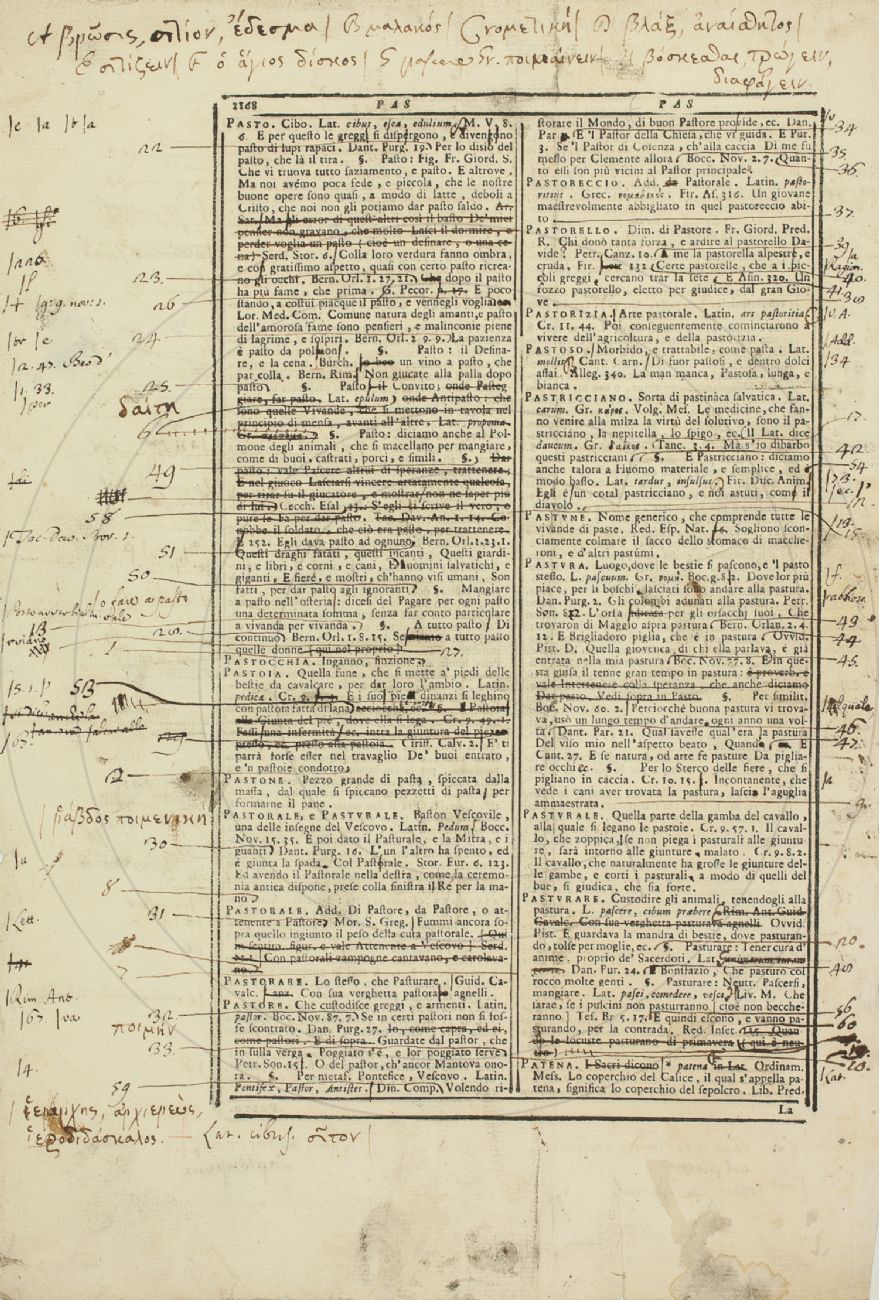 A βρῶσις, σιτίον, ἔδεσμα | B μαλακός | D βλάξ, ἀναίσθητος |
E σιτίζειν | F ὁ ἅγιος δίσκος | ποιμαίνειν | βόσκεσθαι, τρώγειν,
διαφάγειν.
1168 PAS PAS
PASTO. Cibo. Lat. cibus, eſca, edulium. M. V. 8.
6. E per queſto le greggi ſi diſpergono, e divengono
paſto di lupi rapaci. Dant. Purg. 19. Per lo diſio del
paſto, che là il tira. §. Paſto: Fig. Fr. Giord. S.
Che vi truova tutto ſaziamento, e paſto. E altrove,
Ma noi avémo poca fede, e piccola, che le noſtre
buone opere ſono quaſi, a modo di latte, deboli a
Criſto, che noi non gli poſſiamo dar paſto ſaldo. Ar.
Sat. Ma gli error di queſt'altri così il baſto De' miei
penſier non gravano, che molto Laſci il dormire, o
perder voglia un paſto (cioè un deſinare, o una ce-
na) Serd. Stor. 6. Colla loro verdura fanno ombra,
e con gratiſſimo aſpetto, quaſi con certo paſto ricrea-
no gli occhi. Bern. Orl. 1. 27. 21. Che dopo il paſto
ha più fame, che prima. G. Pecor. E poco
ſtando, a coſtui piacque il paſto, e vennegli voglia
Lor. Med. Com. Comune natura degli amanti, e paſto
dell'amoroſa fame ſono penſieri, e malinconie piene
di lagrime, e ſoſpiri. Bern. Orl. 2. 9. 9. La pazienza
è paſto da poltroni. §. Paſto: il Deſina-
re, e la cena. Burch. Io beo un vino a paſto, che
par colla. Bern. Rim. Non giucate alla palla dopo
paſto §. Paſto: il Convito; onde Paſteg-
giare, far paſto. Lat. epulum; onde Antipaſto: che
ſono quelle Vivande, che ſi mettono in tavola nel
principio di menſa, avanti all'altre. Lat. propoma.
§. Paſto: diciamo anche al Pol-
mone degli animali, che ſi macellano per mangiare,
come di buoi, caſtrati, porci, e ſimili. §. Dar
paſto: vale Paſcere altrui di ſperanze, trattenere.
E nel giuoco Laſciarſi vincere artatamente qualcoſa,
per tirar ſu il giucatore, e moſtrar non ne ſaper più
di lui. Cecch. Eſal. 13. S'egli ſi ſcrive il vero, o
pure ſe ba per dar paſto. Tac. Dav. An. 1. 14. Co-
nobbe il ſoldato, che ciò era paſto, per trattenere.
E 152. Egli dava paſto ad ognuno. Bern. Orl. 1. 23. 1.
Queſti draghi fatati, queſti incanti, Queſti giardi-
ni, e libri, e corni, e cani, E uomini ſalvatichi, e
giganti, E fiere, e moſtri, ch'hanno viſi umani, Son
fatti, per dar paſto agli ignoranti §. Mangiare
a paſto nell'oſteria: diceſi del Pagare per ogni paſto
una determinata ſomma, ſenza far conto particolare
a vivanda per vivanda. §. A tutto paſto: Di
continuo. Bern. Orl. 1. 8. 15. Seguiamo a tutto paſto
quelle donne (qui nel proprio)
PASTOCCHIA. Inganno, finzione.
PASTOIA. Quella fune, che ſi mette a' piedi delle
beſtie da cavalcare, per dar loro l'ambio. Latin.
pedica. Cr. 9. E i ſuoi piedi dinanzi ſi leghino
con paſtoia fatta di lana, §. Paſtoia
alla Giunta del piè, dove ella ſi lega. Cr. 9. 49. 1.
Faſſi una infermità ec. intra la giuntura del piè,
preſſo, ec. preſſo alla paſtoia. Ciriff. Calv. 2. E' ti
parrà forſe eſſer nel travaglio De' buoi entrato,
e 'n paſtoie condotto.
PASTONE. Pezzo grande di paſta, ſpiccata dalla
maſſa, dal quale ſi ſpiccano pezzetti di paſta, per
formarne il pane.
PASTORALE, e PASTURALE. Baſton Veſcovile,
una delle inſegne del Veſcovo. Latin. Pedum. Bocc.
Nov. 15. 35. E poi dato il Paſturale, e la Mitra, e i
guanti. Dant. Purg. 16. L'un l'altro ha ſpento, ed
è giunta la ſpada Col Paſtorale. Stor. Eur. 6. 123.
Ed avendo il Paſtorale nella deſtra, come la ceremo-
nia antica diſpone, preſe colla ſiniſtra il Re per la ma-
no.
PASTORALE. Add. Di Paſtore, da Paſtore, o at-
tenente a Paſtore. Mor. S. Greg. Fummi ancora ſo-
pra quello ingiunto il peſo della cura paſtorale. (Qui
in ſentim. figur. e vale Attenente a Veſcovo) Serd.
Con paſtorali zampogne cantavano, e carolava-
no.
PASTORARE. Lo ſteſſo, che Paſturare. Guid. Ca-
valc. Con ſua verghetta paſtora agnelli.
PASTORE. Che cuſtodiſce greggi, e armenti. Latin.
paſtor. Boc. Nov. 87. 7. Se in certi paſtori non ſi foſ-
ſe ſcontrato. Dan. Purg. 27. Io, come capra, ed ei,
come paſtori. E di ſopra. Guardate dal paſtor, che
in ſulla verga Poggiato s'è, e lor poggiato ſerve.
Petr. Son. 15. O del paſtor, ch'ancor Mantova ono-
ra. §. Per metaf. Pontefice, Veſcovo. Latin.
Pontifex, Paſtor, Antiſtes. Din. Comp. Volendo ri-
ſtorare il Mondo, di buon Paſtore provide, ec. Dan.
Par. E 'l Paſtor della Chieſa, che vi guida. E Pur.
3. Se 'l Paſtor di Coſenza, ch'alla caccia Di me fu
meſſo per Clemente allora. Bocc. Nov. 2. 7. Quan-
to eſſi ſon più vicini al Paſtor principale.
PASTORECCIO. Add. da Paſtorale. Latin. paſto-
ritius. Grec. νομαδικός. Fir. Aſ. 316. Un giovane
maeſtrevolmente abbigliato in quel paſtoreccio abi-
to
PASTORELLO. Dim. di Paſtore. Fr. Giord. Pred.
R. Chi donò tanta forza, e ardire al paſtorello Da-
vide? Petr. Canz. 10. A me la paſtorella alpeſtre, e
cruda. Fir. 132. Certe paſtorelle, che a i pic-
coli greggi, cercano trar la ſete. E Aſin. 320. Un
rozzo paſtorello, eletto per giudice, dal gran Gio-
ve.
PASTORIZIA. Arte paſtorale. Latin. ars paſtoritia.
Cr. 11. 44. Poi conſeguentemente cominciarono a
vivere dell'agricoltura, e della paſtorizia.
PASTOSO. Morbido, e trattabile, come paſta. Lat.
mollis. Cant. Carn. Di fuor paſtoſi, e dentro dolci
aſſai. Alleg. 340. La man manca, Paſtoſa, lunga, e
bianca.
PASTRICCIANO. Sorta di paſtinàca ſalvatica. Lat.
carum. Gr. κάρος. Volg. Meſ. Le medicine, che fan-
no venire alla milza la virtù del ſolutivo, ſono il pa-
ſtricciano, la nepitella, lo ſpigo, ec. (Il Lat. dice
daucum. Gr. δαῦκος. Tanc. 3. 4. Ma s'io diſbarbo
queſti paſtricciani §. E Paſtricciano: diciamo
anche talora a Huomo materiale, e ſemplice, ed è
modo baſſo. Lat. tardus, inſulſus. Fir. Diſc. Anim.
Egli è un cotal paſtricciano, e noi aſtuti, come il
diavolo
PASTUME. Nome generico, che comprende tutte le
vivande di paſte, Red. Eſp. Nat. Sogliono ſcon-
ciamente colmare il ſacco dello ſtomaco di macche-
roni, e d'altri paſtùmi.
PASTURA. Luogo, dove le beſtie ſi paſcono, e 'l paſto
ſteſſo. L. paſcuum. Gr. νομή. Boc. g. 8. 2. Dove lor più
piace, per li boſchi laſciati ſono andare alla paſtura.
Dan. Purg. 2. Gli colombi adunati alla paſtura. Petr.
Son. 8. L'orſa per gli orſacchi ſuoi, Che
trovaron di Maggio aſpra paſtura. Bern. Orlan. 2. 4.
12. E Brigliadoro piglia, che è in paſtura. Ovvid.
Piſt. D. Quella giovenca, di chi ella parlava, è già
entrata nella mia paſtura. Boc. Nov. 77. 8. E in que-
ſta guiſa il tenne gran tempo in paſtura: è proverb. e
vale Intertenere colla ſperanza, che anche diciamo
Dar paſto. Vedi ſopra in Paſto. §. Per ſimilit.
Boc. Nov. 60. 2. Perciocchè buona paſtura vi trova-
va, usò un lungo tempo d'andare, ogni anno una vol-
ta. Dant. Par. 21. Qual ſaveſſe qual'era la paſtura
Del viſo mio nell'aſpetto beato, Quand' E
Cant. 27. E ſe natura, od arte fe paſture Da piglia-
re occhi ec. §. Per lo Sterco delle fiere, che ſi
pigliano in caccia. Cr. 10. 15. Incontanente, che
vede i cani aver trovata la paſtura, laſcia l'aguglia
ammaeſtrata.
PASTURALE. Quella parte della gamba del cavallo,
alla quale ſi legano le paſtoie. Cr. 9. 57. 1. Il caval-
lo, che zoppica, ſe non piega i paſturali alle giuntu-
re, ſarà intorno alle giunture, malato. Cr. 9. 8. 2.
Il cavallo, che naturalmente ha groſſe le giunture del-
le gambe, e corti i paſturali, a modo di quelli del
bue, ſi giudica, che ſia forte.
PASTURARE. Cuſtodire gli animali, tenendogli alla
paſtura. L. paſcere, cibum præbere. Rim. Ant. Guid.
Cavalc. Con ſua verghetta paſturava agnelli. Ovvid.
Piſt. E guardava la mandra di beſtie, dove paſturan-
do, tolſe per moglie, ec. §. Paſturare: Tener cura d'
anime, proprio de' Sacerdoti. Lat.
Dan. Pur. 24. Bonifazio, Che paſturò col
rocco molte genti. §. Paſturare: Neutr. Paſcerſi,
mangiare. Lat. paſci, comedere, veſci. Liv. M. Che
ſarae, ſe i pulcini non paſturanno (cioè non becche-
ranno) Teſ. Br. 5. 17. E quindi eſcono, e vanno pa-
ſturando, per la contrada. Red. Inſet. Quan-
do le locuſte paſturano di primavera (qui è neu-
tro)
PATENA. I Sacri dicono patena in Lat. Ordinam.
Meſſ. Lo coperchio del Calice, il qual s'appella pa-
tena, ſignifica lo coperchio del ſepolcro. Lib. Pred.
La
22
23.
26
24
25.
δαίτη
6
49
58
51
50
o fare a pasto
27.
5B
2
ῥάβδος ποιμενική
30
8
31
Rim. Ant
32
ποιμήν
33
59
34
35
36.
37.
39
40.
41.
Add.
17.
42
54
49
44
45.
46
47
9.
20.
48
56
60
ἐξάρχης, ἀρχιερεύς,
ἱεροδιδάσκαλος. — Lat. cibus. σῖτον |